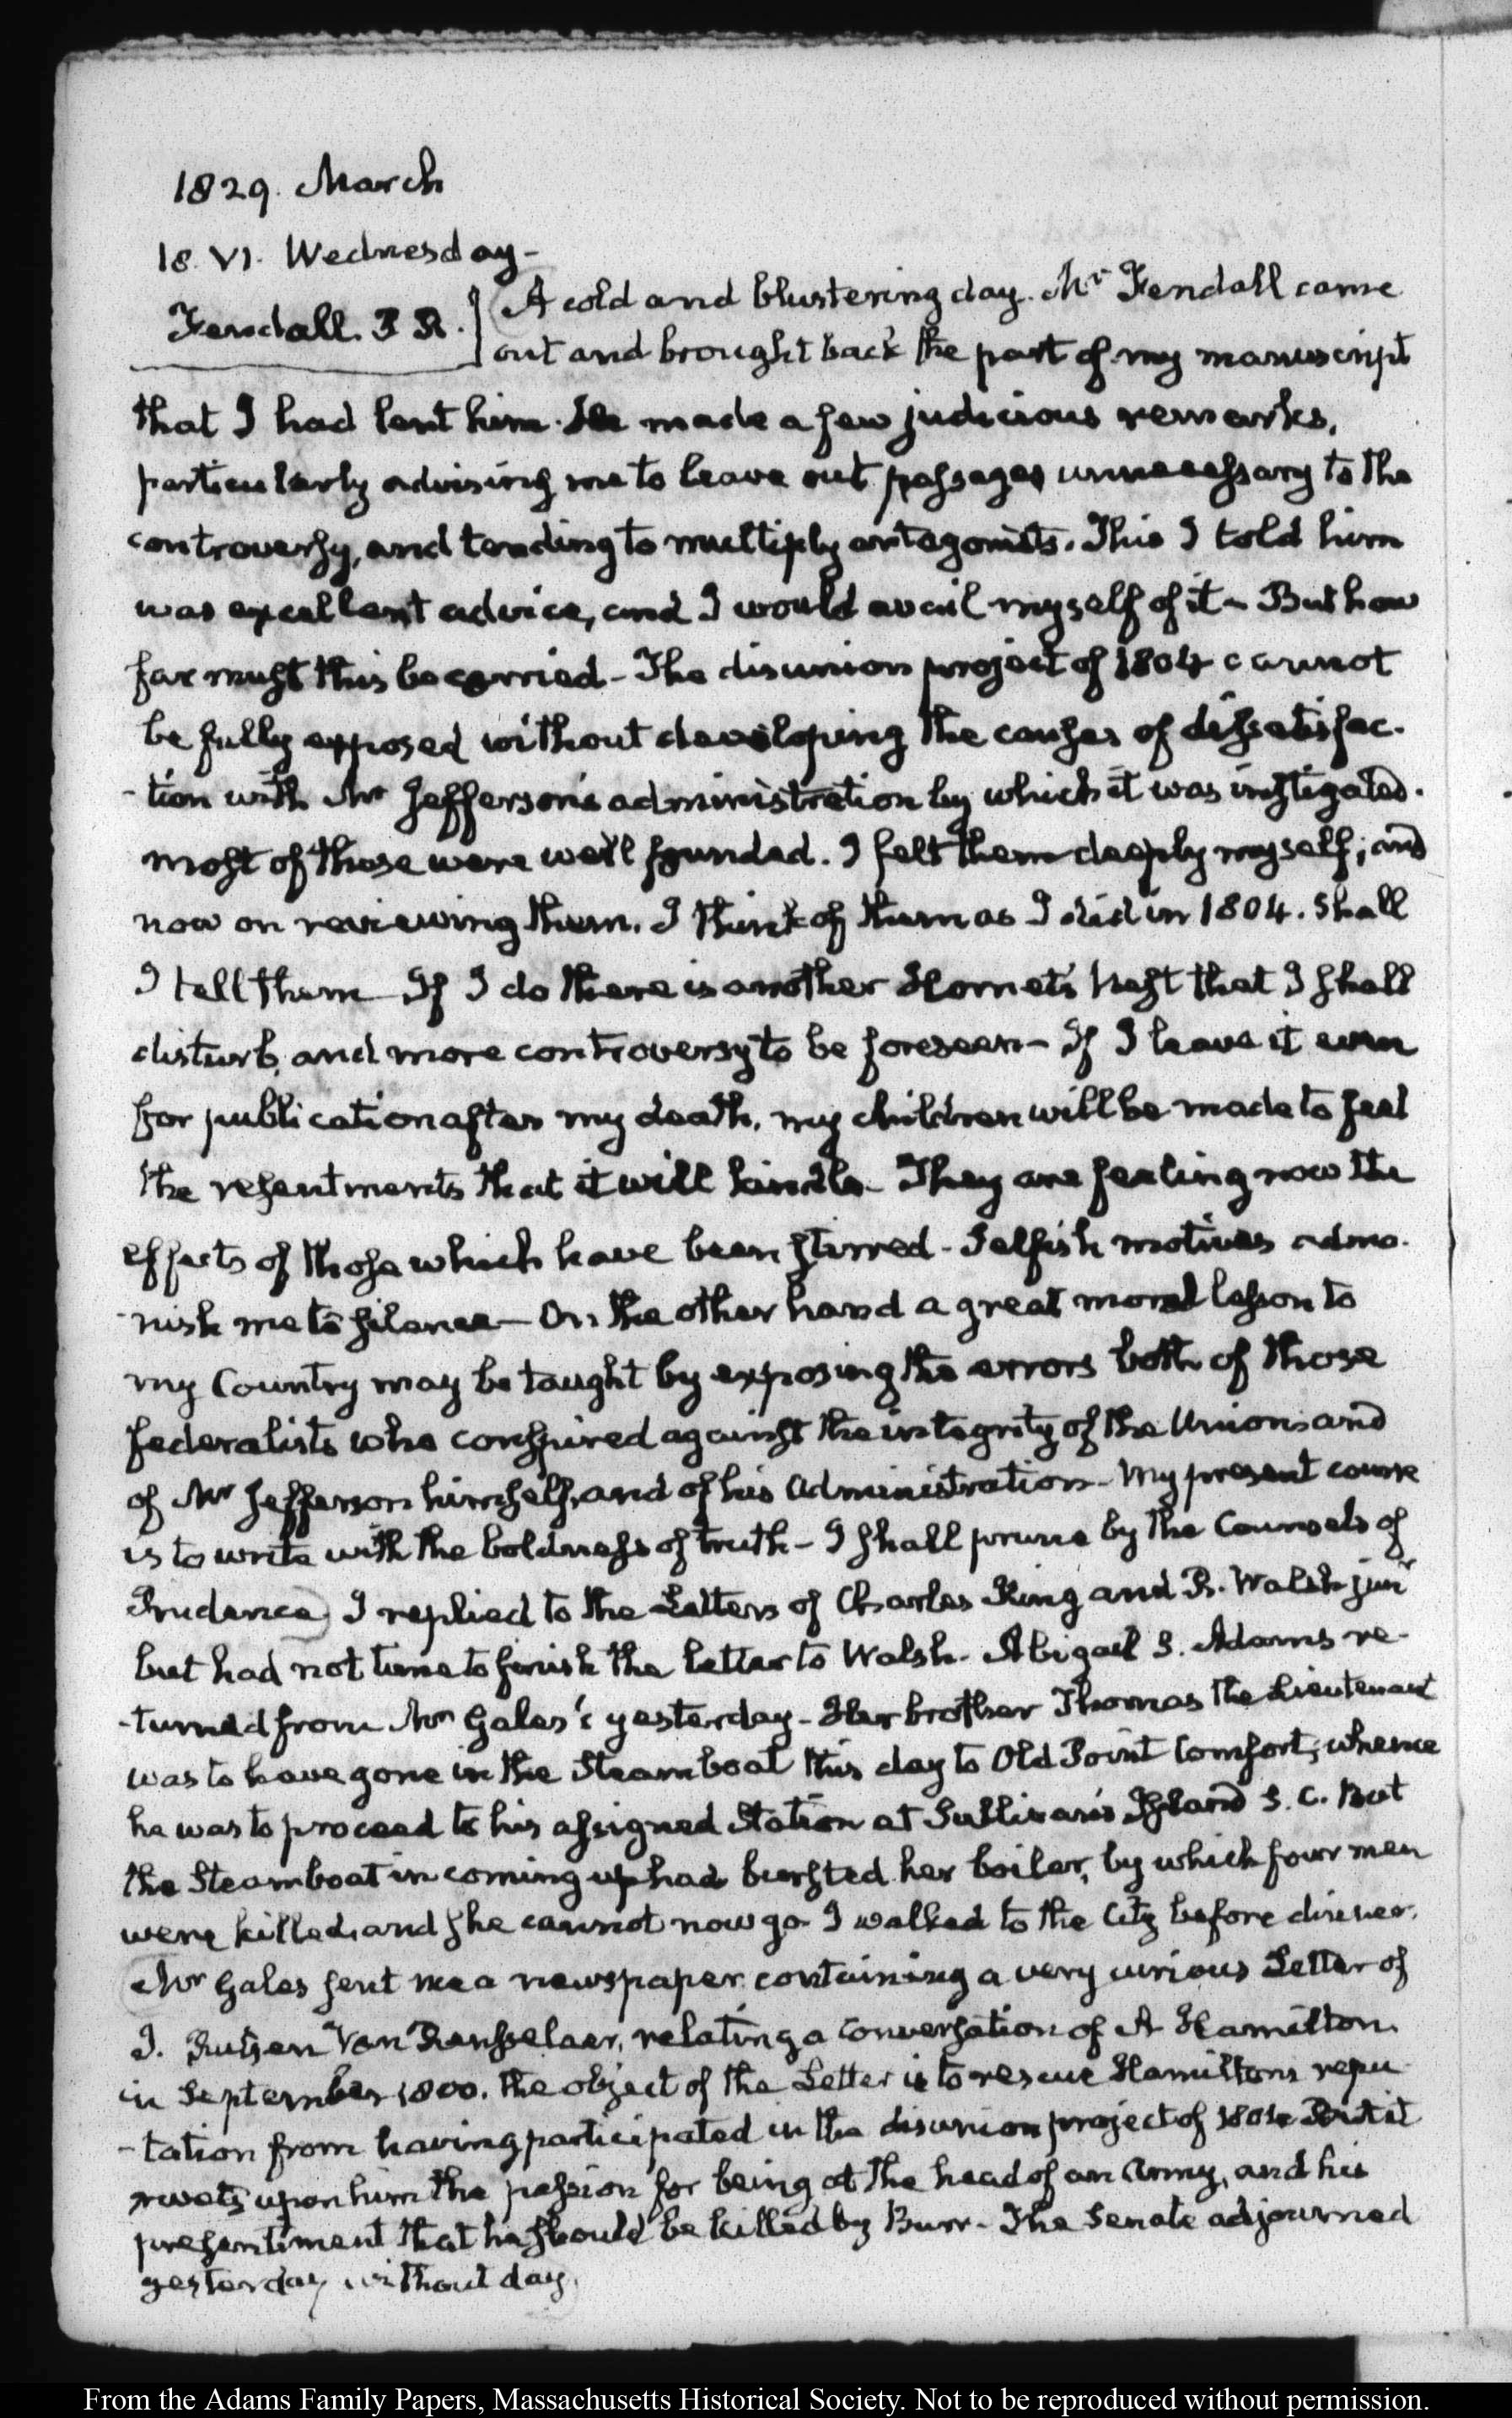 1829. March
18. VI. Wednesday-
Fendall. P R. A cold and blustering day. Mr Fendall came
out and brought back the part of my manuscript
that I had lent him. He made a few judicious remarks,
particularly advising me to leave out passages unnecessary to the
controversy, and tending to multiply antagonists. This I told him
was excellent advice, and I would avail myself of it- But how
far must this be carried- The disunion project of 1804 cannot
be fully exposed without developing the causes of dissatisfac-
-tion with Mr Jefferson's administration by which it was instigated.
most of those were well founded. I felt them deeply myself; and
now on reviewing them, I think of them as I did in 1804. Shall
I tell them- If I do there is another Hornet's Nest that I shall
disturb, and more controversy to be foreseen- If I leave it even
for publication after my death, my children will be made to feel
the resentments that it will kindle- They are feeling now the
effects of those which have been stirred- Selfish motives admo-
-nish me to silence- On the other hand a great moral lesson to
my Country may be taught by exposing the errors both of those
federalists who conspired against the integrity of the Union and
of Mr Jefferson himself, and of his Administration- My present course
is to write with the boldness of truth- I shall prune by the Counsels of
Prudence) I replied to the Letters of Charles King and R. Walsh junr
but had not time to finish the letter to Walsh- Abigail S. Adams re-
-turned from Mrs Gales's yesterday- Her brother Thomas the Lieutenant
was to have gone in the Steamboat this day to Old Point Comfort, whence
he was to proceed to his assigned Station at Sullivan's Island S. C. But
the Steamboat in coming up had bursted her boiler, by which four men
were killed, and she cannot now go- I walked to the City before dinner.
(Mr Gales sent me a newspaper containing a very curious Letter of
J. Rutsen Van Rensselaer, relating a conversation of A Hamilton
in September 1800. The object of the Letter is to rescue Hamilton's repu-
-tation from having participated in the disunion project of 1804 But it
rivets upon him the passion for being at the head of an Army, and his
presentiment that he should be killed by Burr- The Senate adjourned
yesterday without day.
From the Adams Family Papers, Massachusetts Historical Society. Not to be reproduced without permission.